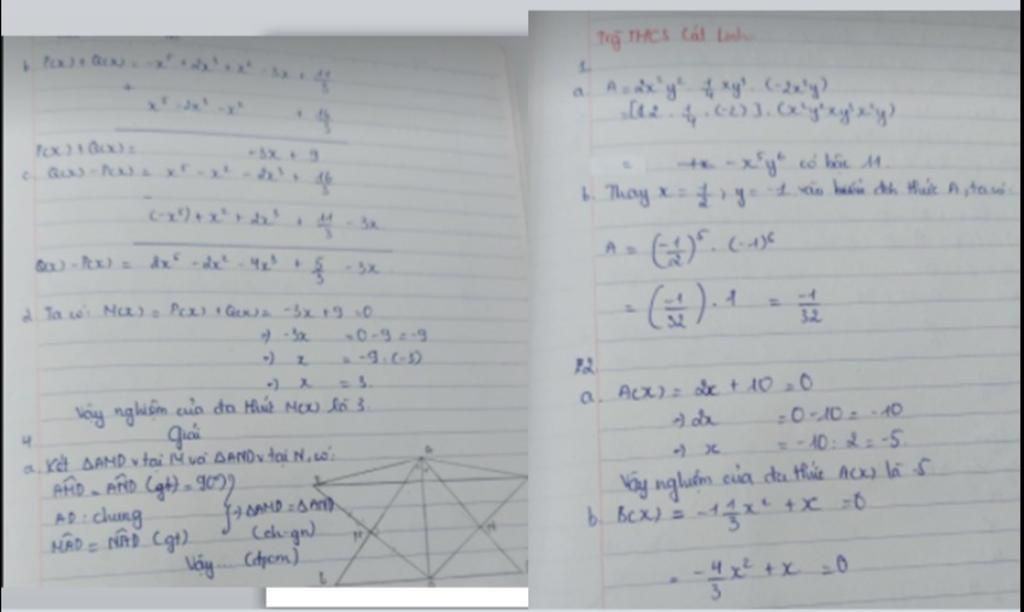 b. P(x) + Q(x) = -x⁵ + 2x³ + x² - 3x + 11/3
+
x⁵ - 2x³ - x² + 16/3
P(x) + Q(x) = -3x + 9
c. Q(x) - P(x) = x⁵ - x² - 2x³ + 16/3
-
(-x⁵) + x² + 2x³ + 11/3 - 3x
Q(x) - P(x) = 2x⁵ - 2x² - 4x³ + 5/3 - 3x
d. Ta có: M(x) = P(x) + Q(x) = -3x + 9 = 0
=) -3x = 0 - 9 = -9
=) x = -9 : (-3)
=) x = 3.
Vậy nghiệm của đa thức M(x) là 3.
4 Giải
a. Xét ΔAMD v tại M và ΔAND v tại N, có:
AMD = AND (gt) = 90°)
AD: chung
MAD = NAD (gt)
} =) ΔAMD = ΔAND
(ch-gn)
Vậy... (đpcm)
Trg THCS Cát Linh
1.
a. A = 2x²y² . 1/4 xy³ . (-2x²y)
= [2 . 1/4 . (-2)] . (x²y²xy³x²y)
= - x⁵y⁶ có bậc 11.
b. Thay x = 1/2, y = -1 vào biểu thức A, ta có:
A = (-1/2)⁵ . (-1)⁶
= (-1/32) . 1 = -1/32
B2
a. A(x) = 2x + 10 = 0
=) 2x = 0 - 10 = -10
=) x = -10 : 2 = -5.
Vậy nghiệm của đa thức A(x) là -5
b. B(x) = -1 1/3 x² + x = 0
= -4/3 x² + x = 0